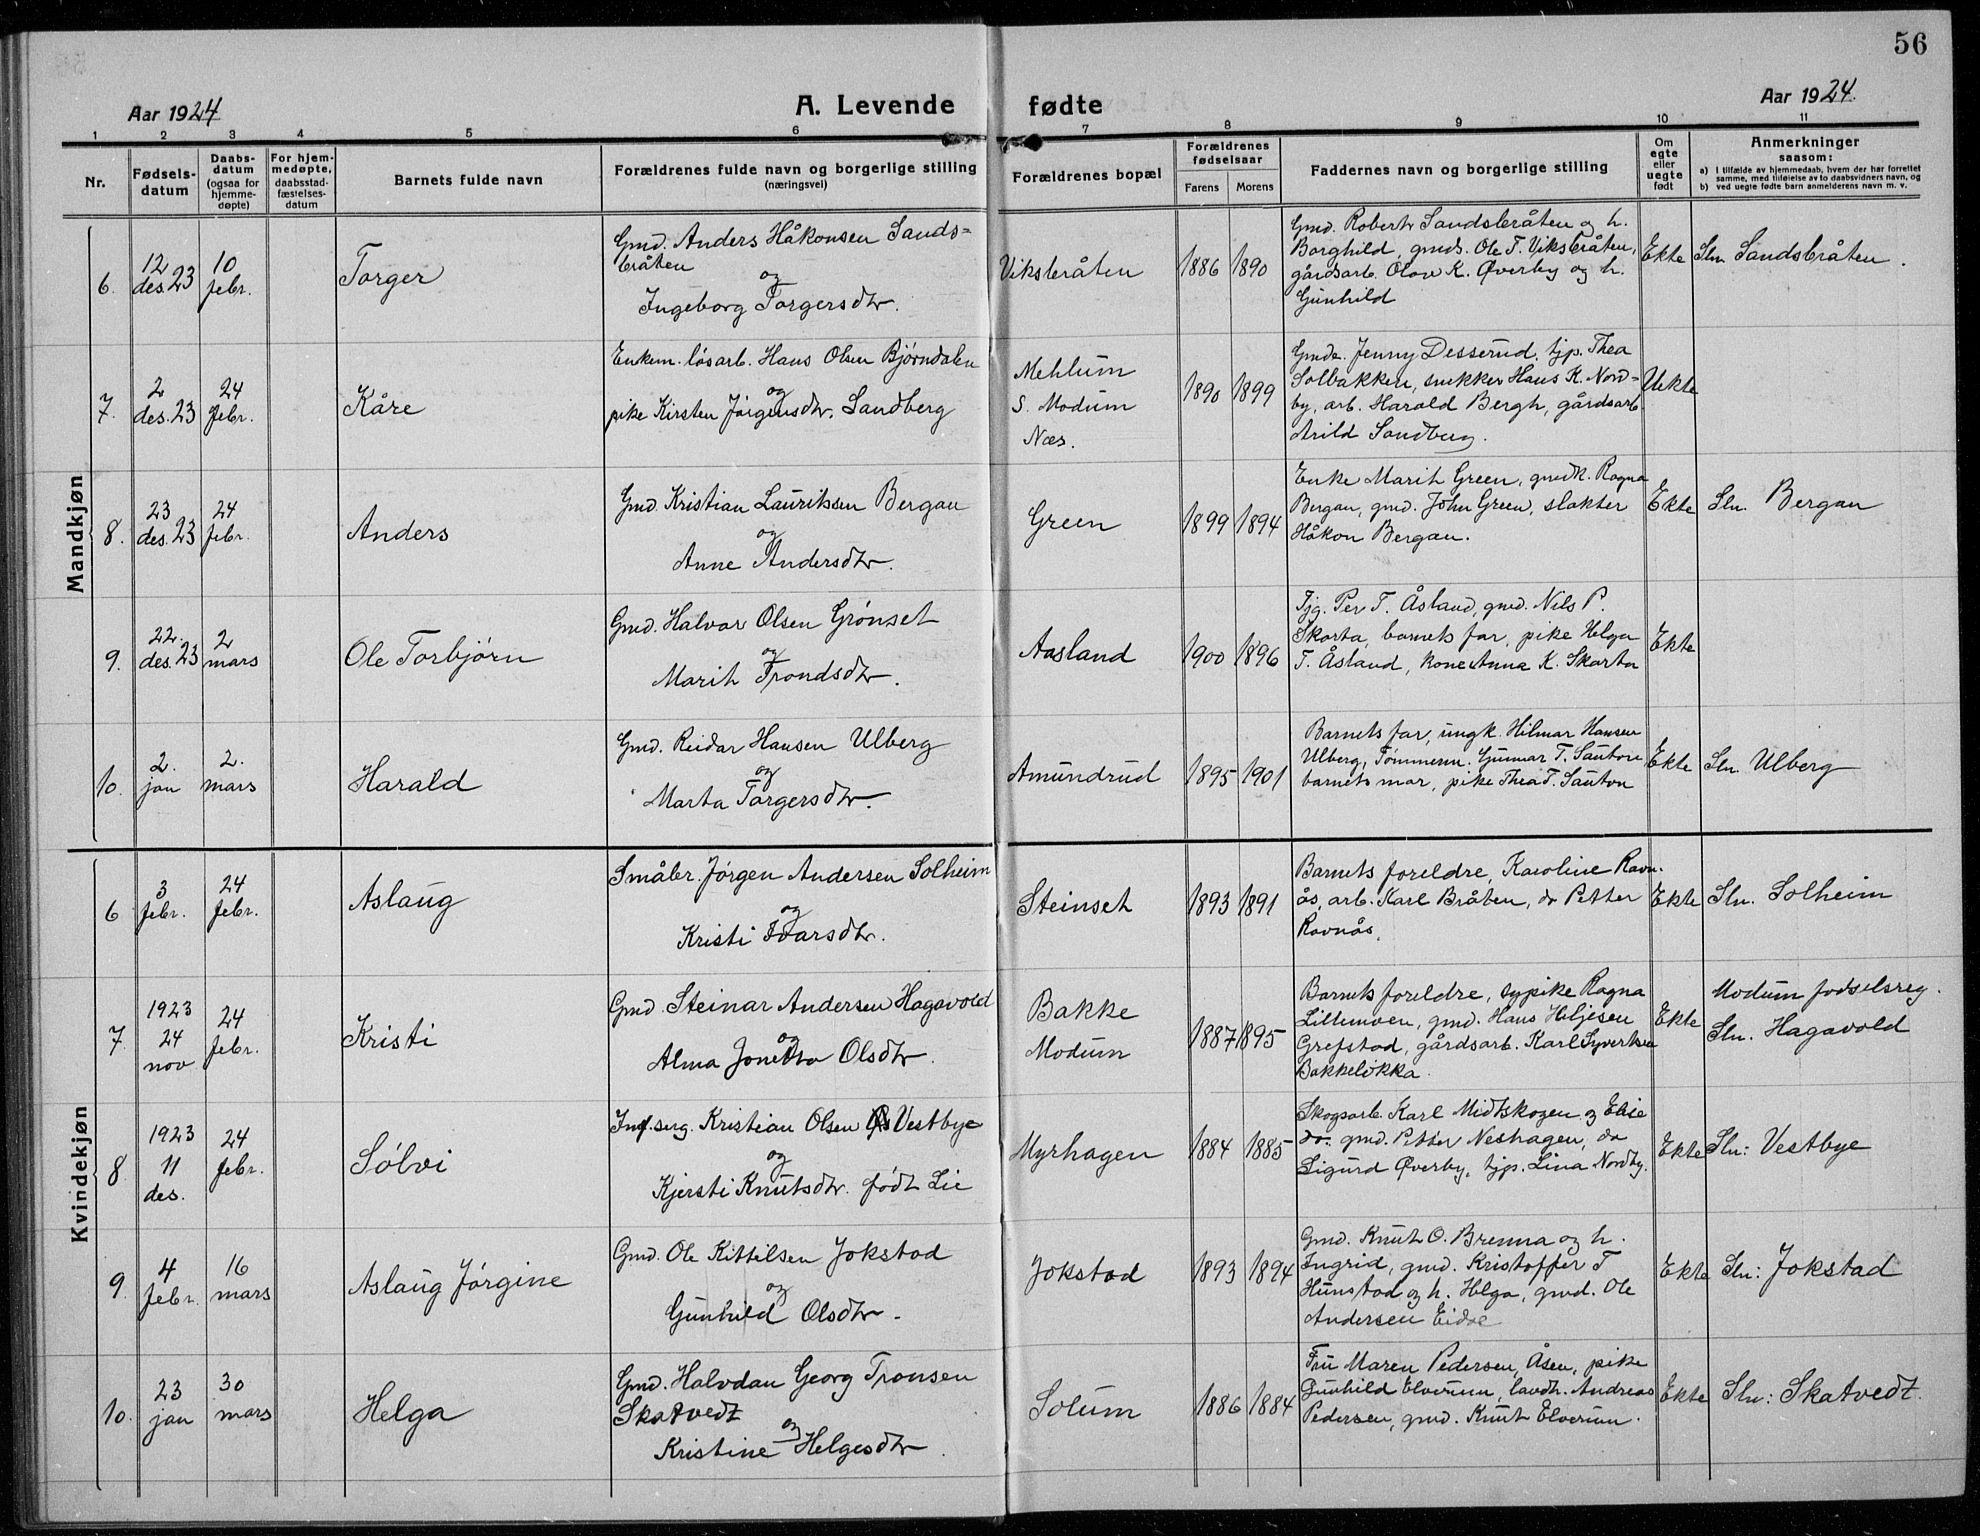 56
Aar 1924
A. Levende fødte
Aar 1924.
1 2 3 4 5 6 7 8 9 10 11
Nr.
Fødsels-
datum
Daabs-
datum
(ogsaa for
hjemme-
døpte)
For hjem-
medøpte,
daabsstad-
fæstelses-
datum
Barnets fulde navn
Forældrenes fulde navn og borgerlige stilling
(næringsvei)
Forældrenes bopæl
Forældrenes
fødselsaar
Farens Morens
Faddernes navn og borgerlige stilling
Om
egte
eller
uegte
født
Anmerkninger
saasom:
a) I tilfælde av hjemmedaab, hvem der har forrettet
samme, med tilføielse av to daabsvidners navn, og
b) ved uegte fødte barn anmelderens navn m. v.
Mandkjøn
6.
12
des. 23
10
febr.
Torger
Gmd. Anders Håkonsen Sands=
bråten
og
Ingeborg Torgersdtr.
Viksbråten
1886 1890
Gmd. Robert Sandsbråten og h.
Borghild, gmds. Ole T. Viksbråten,
gårdsarb. Olav K. Øverby og h.
Gunhild
Ekte
Sln Sandsbråten.
7.
2
des. 23
24
febr.
Kåre
Enkem. løsarb. Hans Olsen Bjørndalen
og
pike Kirsten Jørgensdtr. Sandberg
Mehlum
S. Modum
Næs.
1890 1899
Gmds. Jenny Desserud, tjp. Thea
Solbakken, snekker Hans K. Nord=
by, arb. Harald Bergh, gårdsarb.
Arild Sandberg.
Uekte
8.
23
des. 23
24
febr.
Anders
Gmd. Kristian Lauritssen Bergan
og
Anne Andersdtr.
Green
1899 1894
Enke Marit Green, gmdk. Ragna
Bergan, gmd. John Green, slakter
Håkon Bergan.
Ekte
Sln. Bergan
9.
22.
des. 23
2
mars
Ole Torbjørn
Gmd. Halvor Olsen Grønset
og
Marit Trondsdtr.
Aasland
1900 1896
Tjg. Per T. Åsland, gmd. Nils P.
Skarta, barnets far, pike Helga
T. Åsland, kone Anna K. Skarta
Ekte
10.
2.
jan
2.
mars
Harald
Gmd. Reidar Hansen Ulberg
og
Marta Torgersdtr.
Amundrud
1895 1901
Barnets far, ungk. Hilmar Hansen
Ulberg, Tømmerm. Gunnar T. Sauton
barnets mor, pike Thea T. Sauton
Ekte
Sln. Ulberg
Kvindekjøn
6
3
febr.
24
febr.
Aslaug
Småbr. Jørgen Andersen Solheim
og
Kristi Ivarsdtr.
Steinset
1893 1891
Barnets foreldre, Karoline Ravn-
ås, arb. Karl Bråten, do Petter
Ravnås.
Ekte
Sln. Solheim
7.
1923
24
nov
24
febr.
Kristi
Gmd. Steinar Andersen Hagavold
og
Alma Jonetta Olsdtr.
Bakke
Modum
1887 1895
Barnets foreldre, sypike Ragna
Littemoen, gmd. Hans Heljesen
Grefstad, gårdsarb. Karl Syvertsen
Bakkeløkka.
Ekte
Modum fødselsreg.
Sln. Hagavold
8
1923
11
des.
24
febr.
Sølvi
Inf. serg. Kristian Olsen Vestbye
og
Kjersti Knutsdtr. født Lie
Myrhagen
1884 1885
Skogsarb. Karl Midtskogen og Elise
do. gmd. Petter Neshagen, do
Sigurd Øverby, tjp. Lina Nordby.
Ekte
Sln: Vestbye
9
4
febr.
16
mars
Aslaug Jørgine
Gmd. Ole Kittilsen Jokstad
og
Gunhild Olsdtr.
Jokstad
1893 1894
Gmd. Knut O. Brenna og h.
Ingrid, gmd. Kristoffer T
Hunstad og h. Helga, gmd. Ole
Andersen Eidal
Ekte
Sln: Jokstad
10.
23
jan
30
mars
Helga
Gmd. Halvdan Georg Tronsen
Skatvedt
og
Kristine Helgesdtr.
Solum
1886 1884
Fru Maren Pedersen, Åsen, pike
Gunhild Elverum, landh. Andreas
Pedersen, gmd. Knut Elverum.
Ekte
Sln: Skatvedt.